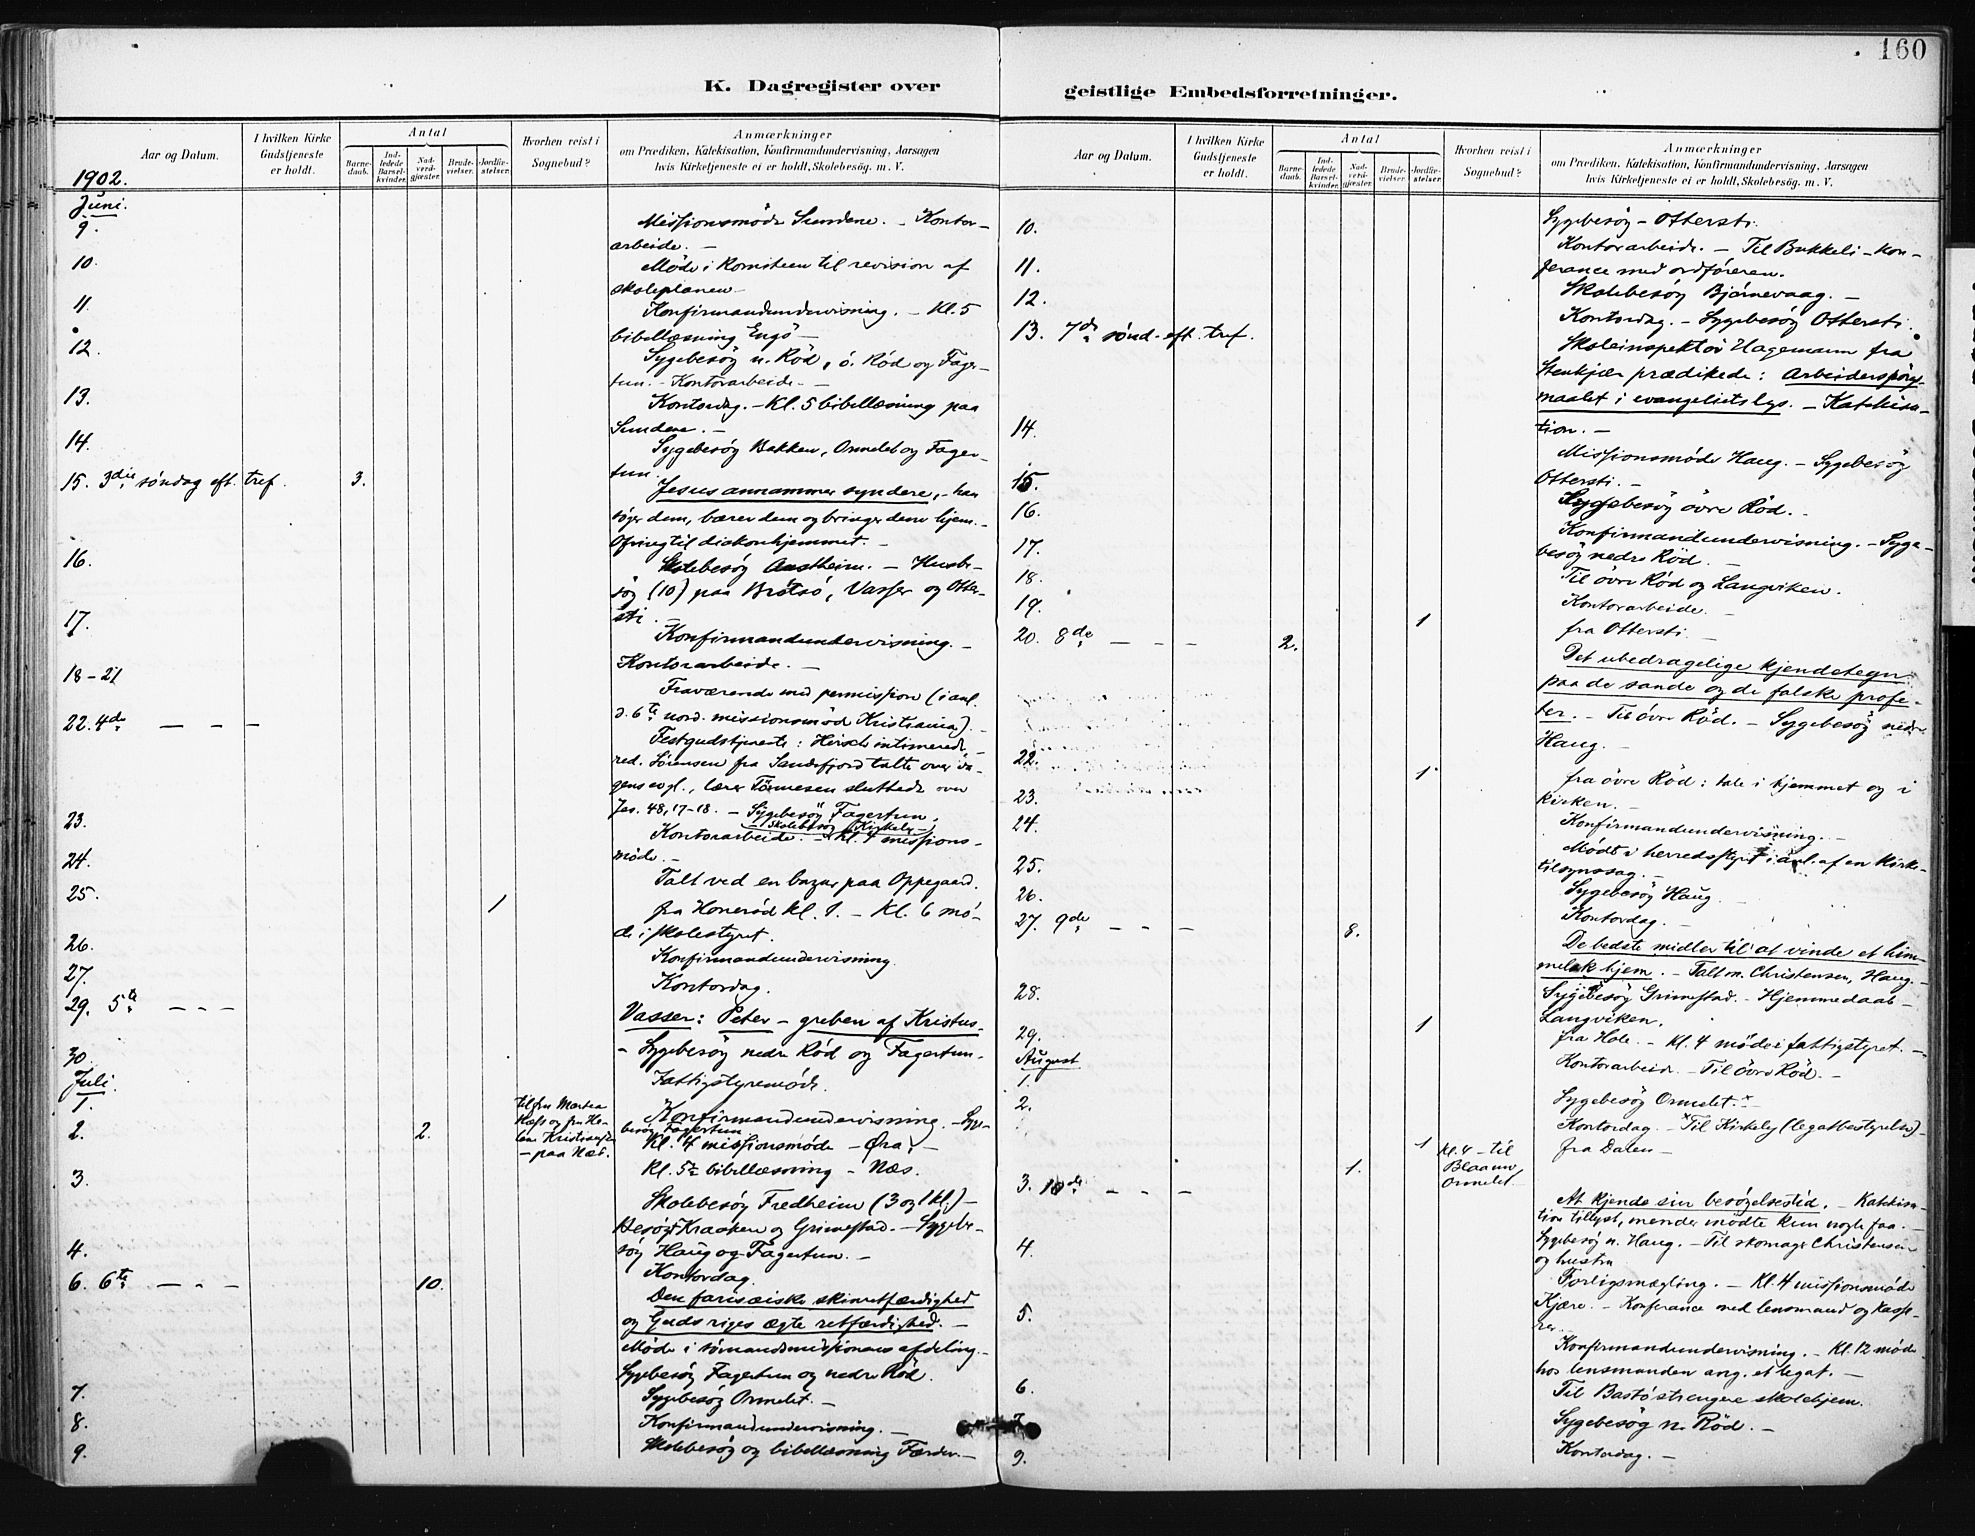 160
K. Dagregister over geistlige Embedsforretninger.
Aar og Datum.
I hvilken Kirke Gudstjeneste er holdt.
Antal
Barnedaab.
Indledede Barselkvinder.
Nadverdgjæster.
Brudevielser.
Jordfæstelser.
Hvorhen reist i Sognebud?
Anmærkninger
om Prædiken, Katekisation, Konfirmandundervisning, Aarsagen
hvis Kirketjeneste ei er holdt, Skolebesög. m. V.
1902.
Juni.
9. Missionsmöde Sundene. – Kontor-
arbeide. –
10. Möde i komiteen til revision af
skoleplanen –
11. Konfirmandundervisning. – Kl. 5
bibellæsning Engö –
12. Sygebesög n. Röd, ö. Röd og Fager-
tun. – Kontorarbeide. –
13. Kontordag. – Kl. 5 bibellæsning paa
Sundene. –
14. Sygebesög Bakken, Ormelet og Fager-
tun.
15. 3die söndag eft. tref. 3. Jesus annammer syndere, – han
söger dem, bærer dem og bringer dem hjem. –
Ofring til diakonhjemmet. –
16. Skolebesög Aastheim. – Husbe-
sög (10) paa Brötsö, Vasser og Otter-
sti. –
17. Konfirmandundervisning. –
Kontorarbeide. –
18-21 Fraværende med permission (i anl.
d. 6te nord. missionsmöd Kristiania). –
22. 4de – – – Festgudstjeneste: Hirsch intimerede,
red. Sörensen fra Sandefjord talte over da-
gens evgl., lærer Tönnesen sluttede over
Jes. 48, 17-18. – Sygebesög Fagertun.
– Skolebesög Kirkely –
23. Kontorarbeide. – Kl. 4 missions-
möde. –
24. Talt ved en bazar paa Oppegaard.
25. 1 fra Honeröd kl. 1. – Kl. 6 mö-
de i skolestyret.
26. Konfirmandundervisning.
27. Kontordag.
29. 5te – – – Vasser: Peter – greben af Kristus –
– Sygebesög nedre Röd og Fagertun. –
30. Fattigstyremöde.
Juli.
1. Konfirmandundervisning. – Syge-
besög Fagertun
2. 2. til fru Martea
Næss og fru He-
lene Kristiansen
– paa Næs.
Kl. 4 missionsmöde – Öra –
Kl. 5½ bibellæsning – Næs.
3. Skolebesög Fredheim (3 og 1 kl.) –
Besögt Kraaken og Grimestad. – Sygebe-
sög Haug og Fagertun. –
4. Kontordag.
6. 6te – – – 10. Den farisæiske skinretfærdighed
og Guds riges ægte retfærdighed. –
Möde i sömandsmissionens afdeling. –
Sygebesög Fagertun og nedre Röd.
7. Sygebesög Ormelet. –
8. Konfirmandundervisning. –
9. Skolebesög og bibellæsning Færder. –
Aar og Datum.
I hvilken Kirke Gudstjeneste er holdt.
Antal
Barnedaab.
Indledede Barselkvinder.
Nadverdgjæster.
Brudevielser.
Jordfæstelser.
Hvorhen reist i Sognebud?
Anmærkninger
om Prædiken, Katekisation, Konfirmandundervisning, Aarsagen
hvis Kirketjeneste ei er holdt, Skolebesög. m. V.
10. Sygebesög – Ottersti.
Kontorarbeide. – Til Bukkeli – kon-
11. ferance med ordföreren.
12. Skolebesög Bjørnevaag. –
Kontordag. – Sygebesög Ottersti.
13. 7de sönd. eft. tref. Skoleinspektör Hagemann fra
Stenkjær prædikede: Arbeiderspörgs-
maalet i evangeliets lys. – Katekisa-
tion. –
14. Missionsmöde Haug. – Sygebesög
Ottersti. –
15. Sygebesög övre Röd. –
16. Konfirmandundervisning. – Syge-
besög nedre Röd. –
17. Til övre Röd og Langviken.
18. Kontorarbeide. –
19. 1 fra Ottersti. –
20. 8de – – – 2. Det ubedragelige kjendetegn
paa de sande og de falske profe-
ter. – Til övre Röd. – Sygebesög nedre
Haug. –
22. 1 fra övre Röd: tale i hjemmet og i
kirken. –
23. Konfirmandundervisning. –
24. Mödt i herredsstyret i anl. af en kirke-
tilsynssag. –
25. Sygebesög Haug.
26. Kontordag. –
27. 9de – – – 8. De bedste midler til at vinde et him-
melsk hjem. – Talt m. Christensen, Haug. –
28. Sygebesög Grimestad. – Hjemmedaab –
Langviken.
29. 1 fra Hole. – Kl. 4 möde i fattigstyret. –
August
Kontorarbeide. – Til övre Röd. –
1. Sygebesög Ormelet. –
2. Kontordag. – Til Kirkely (legatbestyrelse). –
1 fra Dalen –
3. 10de – – – 1. Kl. 4 – til
Ormelet.
At kjende sin besögelsestid. – Katekisa-
tion tillyst, men der mödte kun nogle faa. –
Sygebesög n. Haug. – Til skomager Christensen
og hustru
4. Forligsmægling. – Kl. 4 missionsmöde
Kjære. – Konferance med lensmand og kasse-
rer.
5. Konfirmandundervisning. – Kl. 12 möde
hos lensmanden ang. et legat. –
6. Til Bastö strengere skolehjem.
7. Sygebesög n. Röd. –
9. Kontordag. –